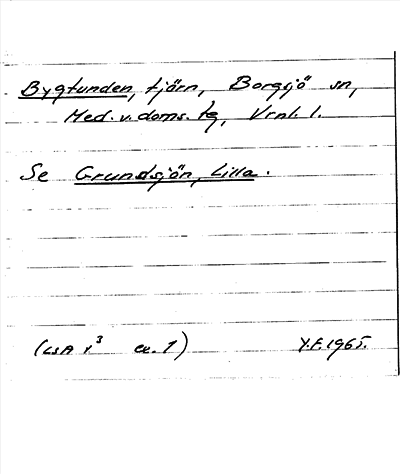 Bygtunden, tjärn, Borgsjö sn,
Med. v. doms. tg, Vrnl. l.
Se Grundsjön, Lilla.
(LSA x³ ex. 1) Y.F. 1965.